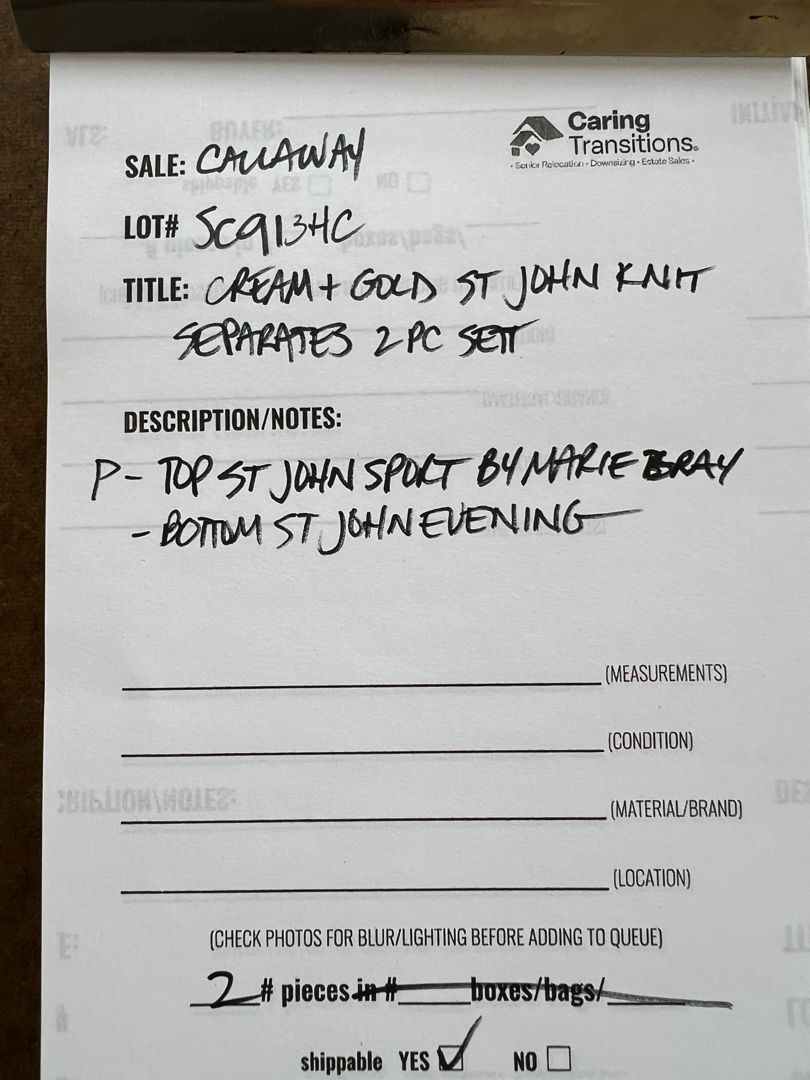 Caring
Transitions®
• Senior Relocation • Downsizing • Estate Sales •
SALE: CALLAWAY
LOT# SC913HC
TITLE: CREAM + GOLD ST JOHN KNIT
SEPARATES 2 PC SETT
DESCRIPTION/NOTES:
P - TOP ST JOHN SPORT BY MARIE GRAY
- BOTTOM ST JOHN EVENING
(MEASUREMENTS)
(CONDITION)
(MATERIAL/BRAND)
(LOCATION)
(CHECK PHOTOS FOR BLUR/LIGHTING BEFORE ADDING TO QUEUE)
2 # pieces in #____boxes/bags/____
shippable YES ☑ NO ☐